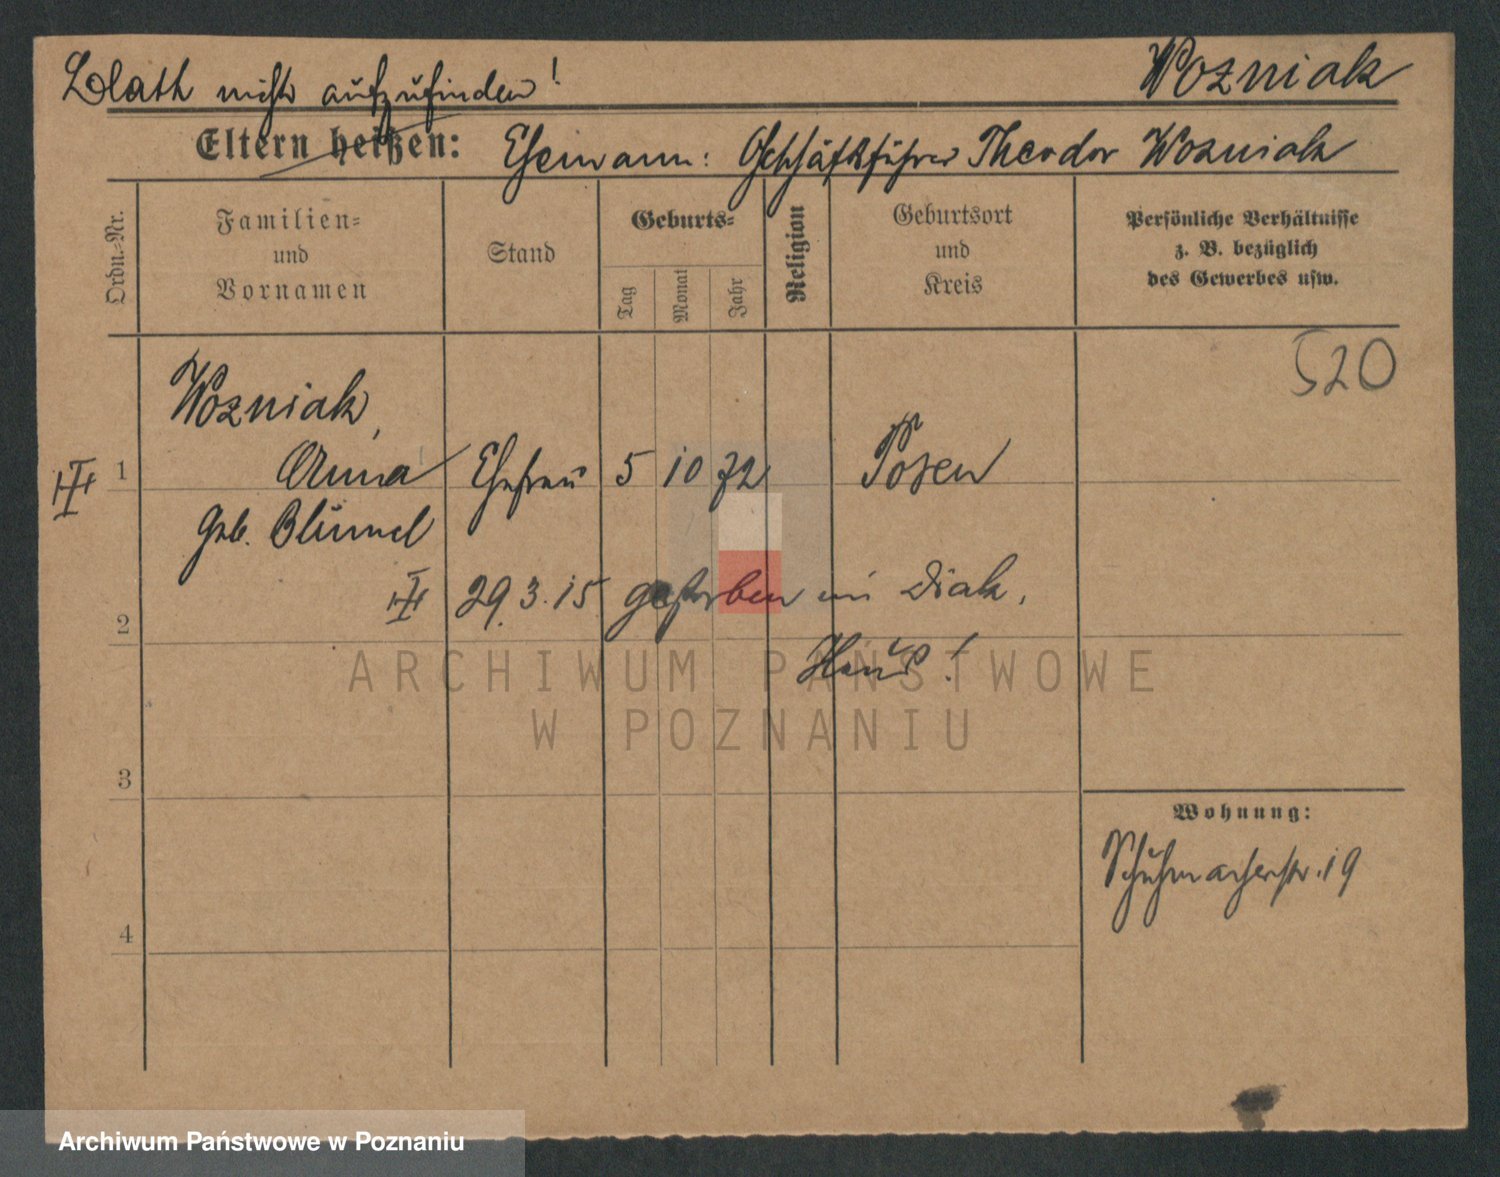 Blatt nicht aufzufinden!
Wozniak
Eltern heißen: Ehemann: Geschäftsführer Theodor Wozniak
Ordn.-Nr.
Familien-
und
Vornamen
Stand
Geburts-
Tag
Monat
Jahr
Religion
Geburtsort
und
Kreis
Persönliche Verhältnisse
z. B. bezüglich
des Gewerbes usw.
520
Wozniak,
1 Anna Ehefrau 5 10 72 Posen
geb. Blümel
2 29.3.15 gestorben im Diak.
Haus!
ARCHIWUM PAŃSTWOWE
W POZNANIU
3
Wohnung:
Schuhmacherstr. 19
4
Archiwum Państwowe w Poznaniu